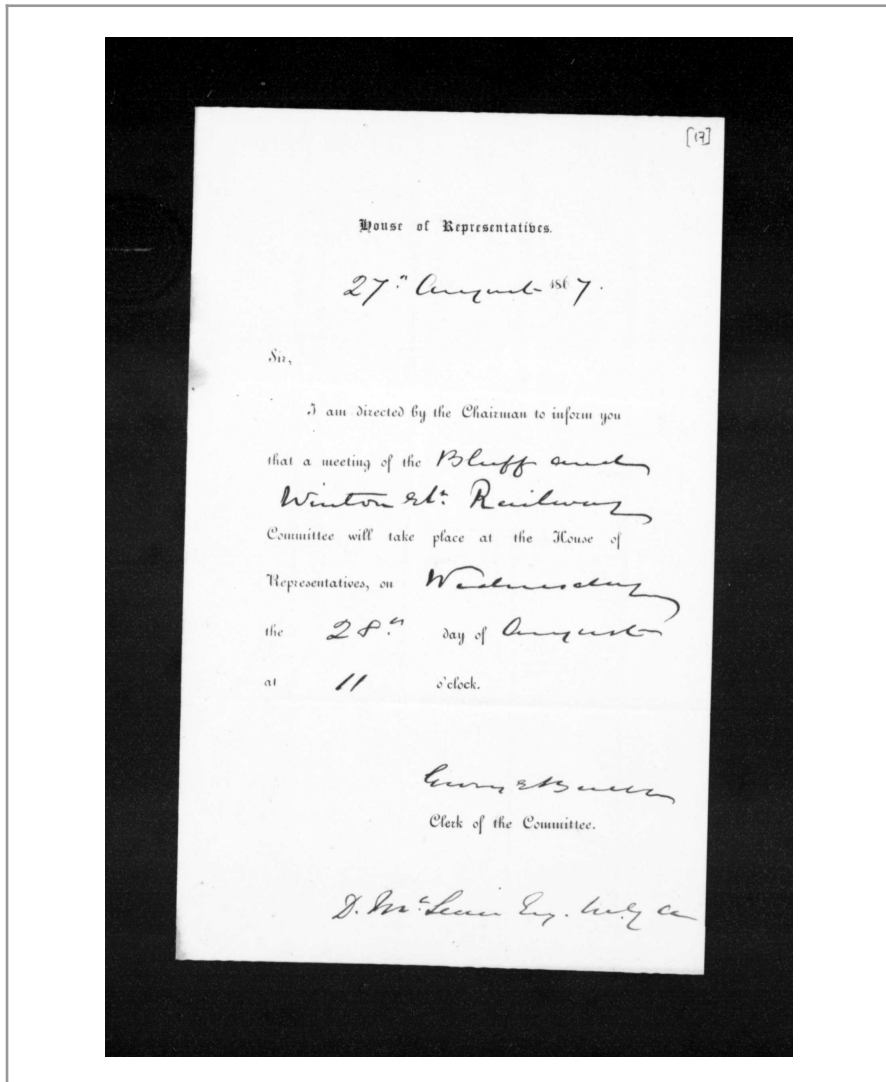 [17]
House of Representatives.
27th August 1867.
Sir,
I am directed by the Chairman to inform you
that a meeting of the Bluff and
Winton St. Railway
Committee will take place at the House of
Representatives, on Wednesday
the 28th day of August
at 11 o'clock.
Clerk of the Committee.
D. McLean Esq.